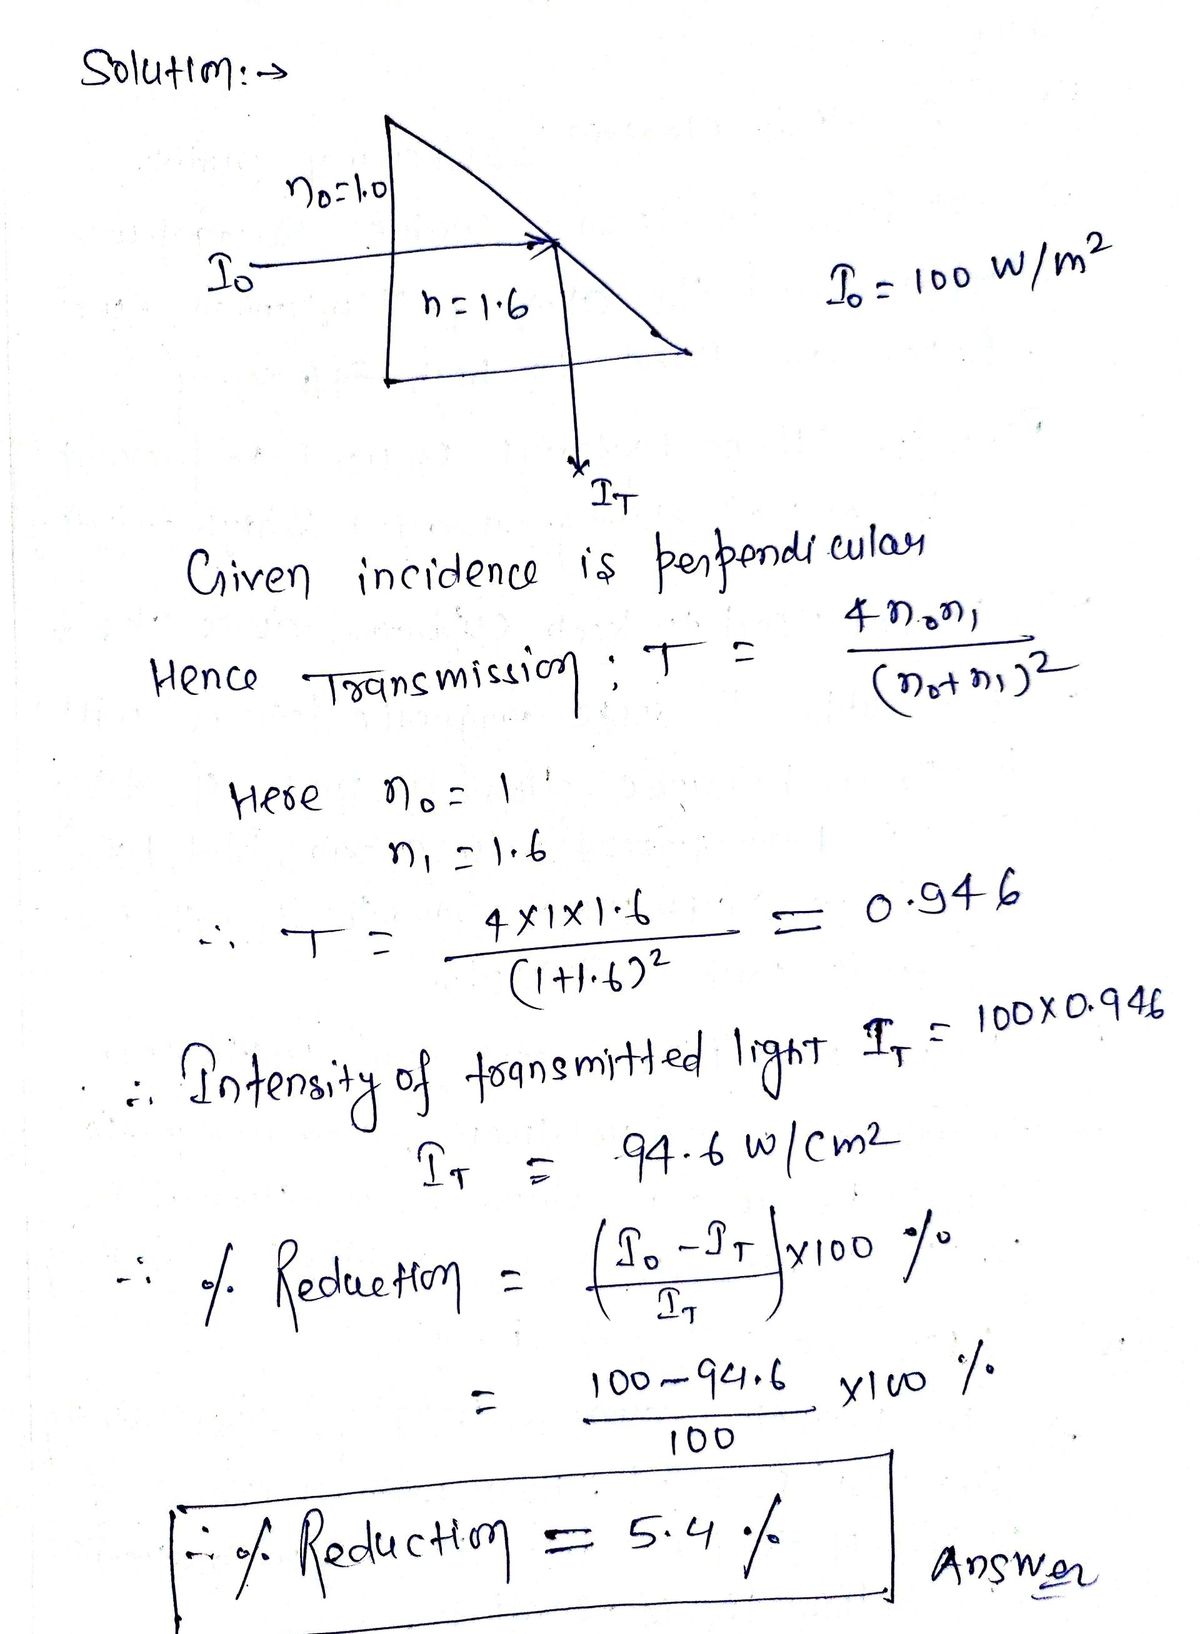 Solution:→
n₀=1.0
I₀
I₀ = 100 W/m²
n=1.6
I_T
Given incidence is perpendicular
Hence Transmission; T = 4n₀n₁ / (n₀+n₁)²
Here n₀ = 1
n₁ = 1.6
∴ T = 4×1×1.6 / (1+1.6)² = 0.946
∴ Intensity of transmitted light I_T = 100×0.946
I_T = 94.6 W/cm²
∴ % Reduction = (I₀ - I_T / I_T) ×100 %
= 100-94.6 / 100 ×100 %
∴ % Reduction = 5.4 %
Answer